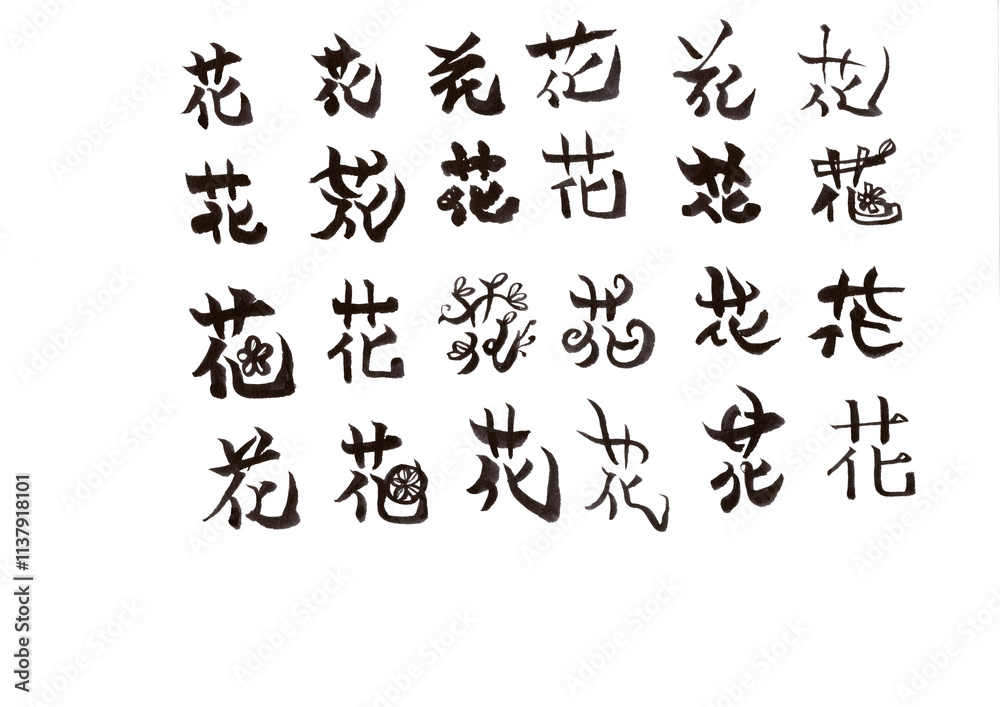 花 花 花 花 花 花
花 花 花 花 花 花
花 花 花 花 花 花
花 花 花 花 花 花
Adobe Stock | #1137918101